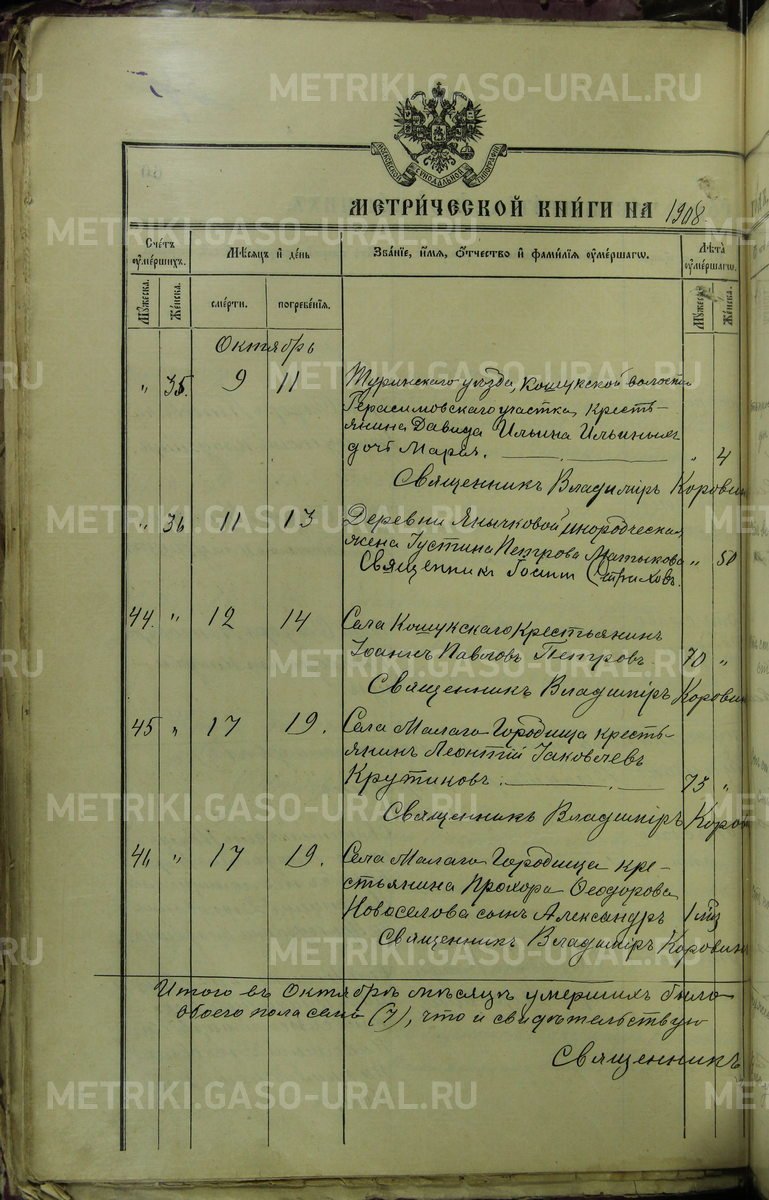 МОСКОВСКОЙ СѴНОДАЛЬНОЙ ТИПОГРАФІИ
МЕТРИ́ЧЕСКОЙ КНИ́ГИ НА 1908
Сче́тъ оуме́ршихъ. Мѣ́сяцъ и де́нь Зва́нїе, и́мя, о́тчество и фами́лїя оуме́ршагѡ. Лѣ́та оуме́ршагѡ.
Мꙋ́жеска. Же́нска. сме́рти. погребе́нїя. Мꙋ́жеска. Же́нска.
Октябрь
" 35. 9 11 Туринскаго уѣзда, Кошукской волости
Герасимовскаго участка, кресть-
янина Давида Ильина Ильиных
дочь Марія. " 4
Священникъ Владиміръ Коровин
" 36 11 13 Деревни Янычковой инородческая
жена Іустина Петрова Матыкова " 50
Священникъ Іоанн
44. " 12 14 Села Кошукскаго крестьянинъ
Іоаннъ Павловъ Петровъ 70 "
Священникъ Владиміръ Коровин
45 " 17 19. Села Малаго Городища кресть-
янинъ Леонтій Іаковлевъ
Крутиковъ. 73 "
Священникъ Владиміръ Коров
46 " 17 19. Села Малаго Городища кре-
стьянина Прохора Ѳеодорова
Новоселова сынъ Александръ 1 мѣс
Священникъ Владиміръ Коровин
Итого въ Октябрѣ мѣсяцѣ умершихъ было
обоего пола семь (7), что и свидѣтельствую
Священникъ
METRIKI.GASO-URAL.RU